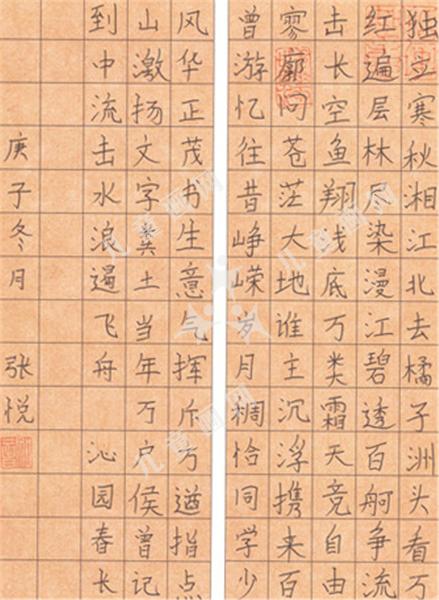 独立寒秋湘江北去橘子洲头看万
红遍层林尽染漫江碧透百舸争流
击长空鱼翔浅底万类霜天竞自由
寥廓问苍茫大地谁主沉浮携来百
曾游忆往昔峥嵘岁月稠恰同学少
风华正茂书生意气挥斥方遒指点
山激扬文字粪土当年万户侯曾记
到中流击水浪遏飞舟 沁园春长
庚子冬月 张悦
儿童画网